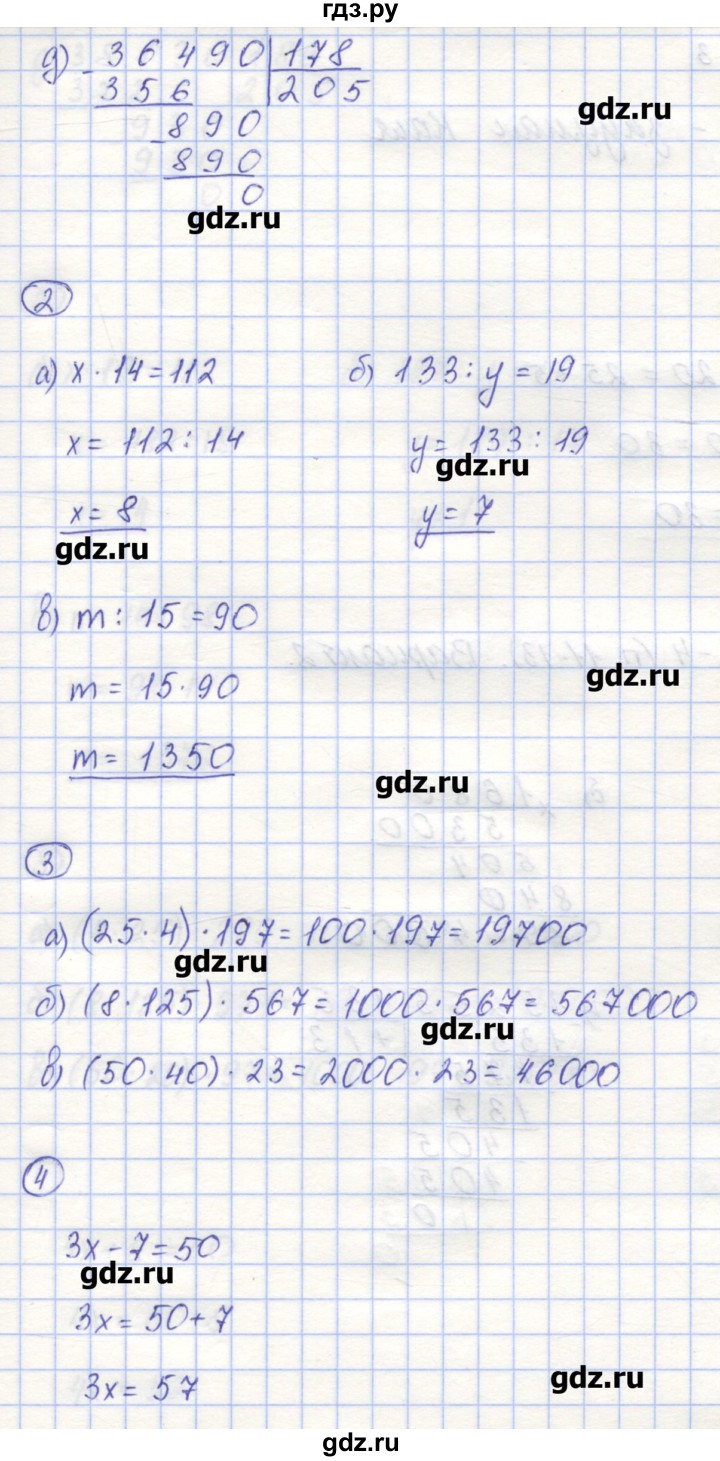 гдз.ру
д) 36490 | 178
356 205
890
gdz.ru
890
0
gdz.ru
2
а) x · 14 = 112 б) 133 : y = 19
x = 112 : 14 y = 133 : 19
gdz.ru
x = 8 y = 7
gdz.ru
в) m : 15 = 90
m = 15 · 90
gdz.ru
m = 1350
gdz.ru
3
а) (25 · 4) · 197 = 100 · 197 = 19700
gdz.ru
б) (8 · 125) · 567 = 1000 · 567 = 567000
gdz.ru
в) (50 · 40) · 23 = 2000 · 23 = 46000
4
3x - 7 = 50
gdz.ru
3x = 50 + 7
3x = 57
gdz.ru
gdz.ru